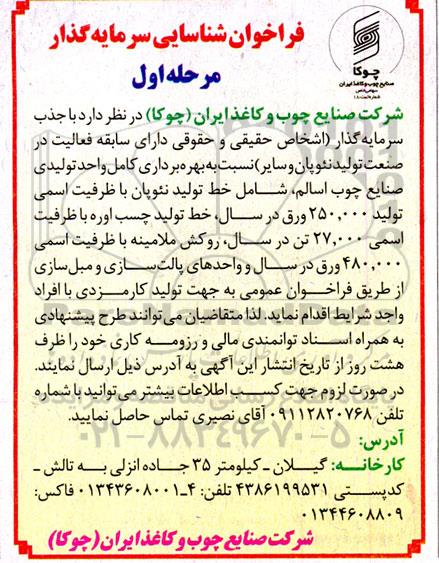 فراخوان شناسایی سرمایه‌گذار
مرحله اول
چوکا
صنایع چوب و کاغذ ایران
شرکت صنایع چوب و کاغذ ایران (چوکا) در نظر دارد با جذب
سرمایه‌گذار (اشخاص حقیقی و حقوقی دارای سابقه فعالیت در
صنعت تولید نئوپان و سایر) نسبت به بهره برداری کامل واحد تولیدی
صنایع چوب اسالم، شامل خط تولید نئوپان با ظرفیت اسمی
تولید ۲۵۰,۰۰۰ ورق در سال، خط تولید چسب اوره با ظرفیت
اسمی ۲۷,۰۰۰ تن در سال، روکش ملامینه با ظرفیت اسمی
۴۸۰,۰۰۰ ورق در سال و واحدهای پالت‌سازی و مبل سازی
از طریق فراخوان عمومی به جهت تولید کارمزدی با افراد
واجد شرایط اقدام نماید. لذا متقاضیان می‌توانند طرح پیشنهادی
به همراه اسناد توانمندی مالی و رزومه کاری خود را ظرف
هشت روز از تاریخ انتشار این آگهی به آدرس ذیل ارسال نمایند.
در صورت لزوم جهت کسب اطلاعات بیشتر می‌توانید با شماره
تلفن ۰۹۱۱۲۸۲۰۷۶۸ آقای نصیری تماس حاصل نمایید.
آدرس:
کارخانه: گیلان ـ کیلومتر ۳۵ جاده انزلی به تالش ـ
کدپستی ۴۳۸۶۱۹۹۵۳۱ تلفن: ۴ـ۰۱۳۴۳۶۰۸۰۰۱ فاکس:
۰۱۳۴۴۶۰۸۸۰۹
شرکت صنایع چوب و کاغذ ایران (چوکا)
۰۲۱-۸۸۳۴۹۶۷۰-۵